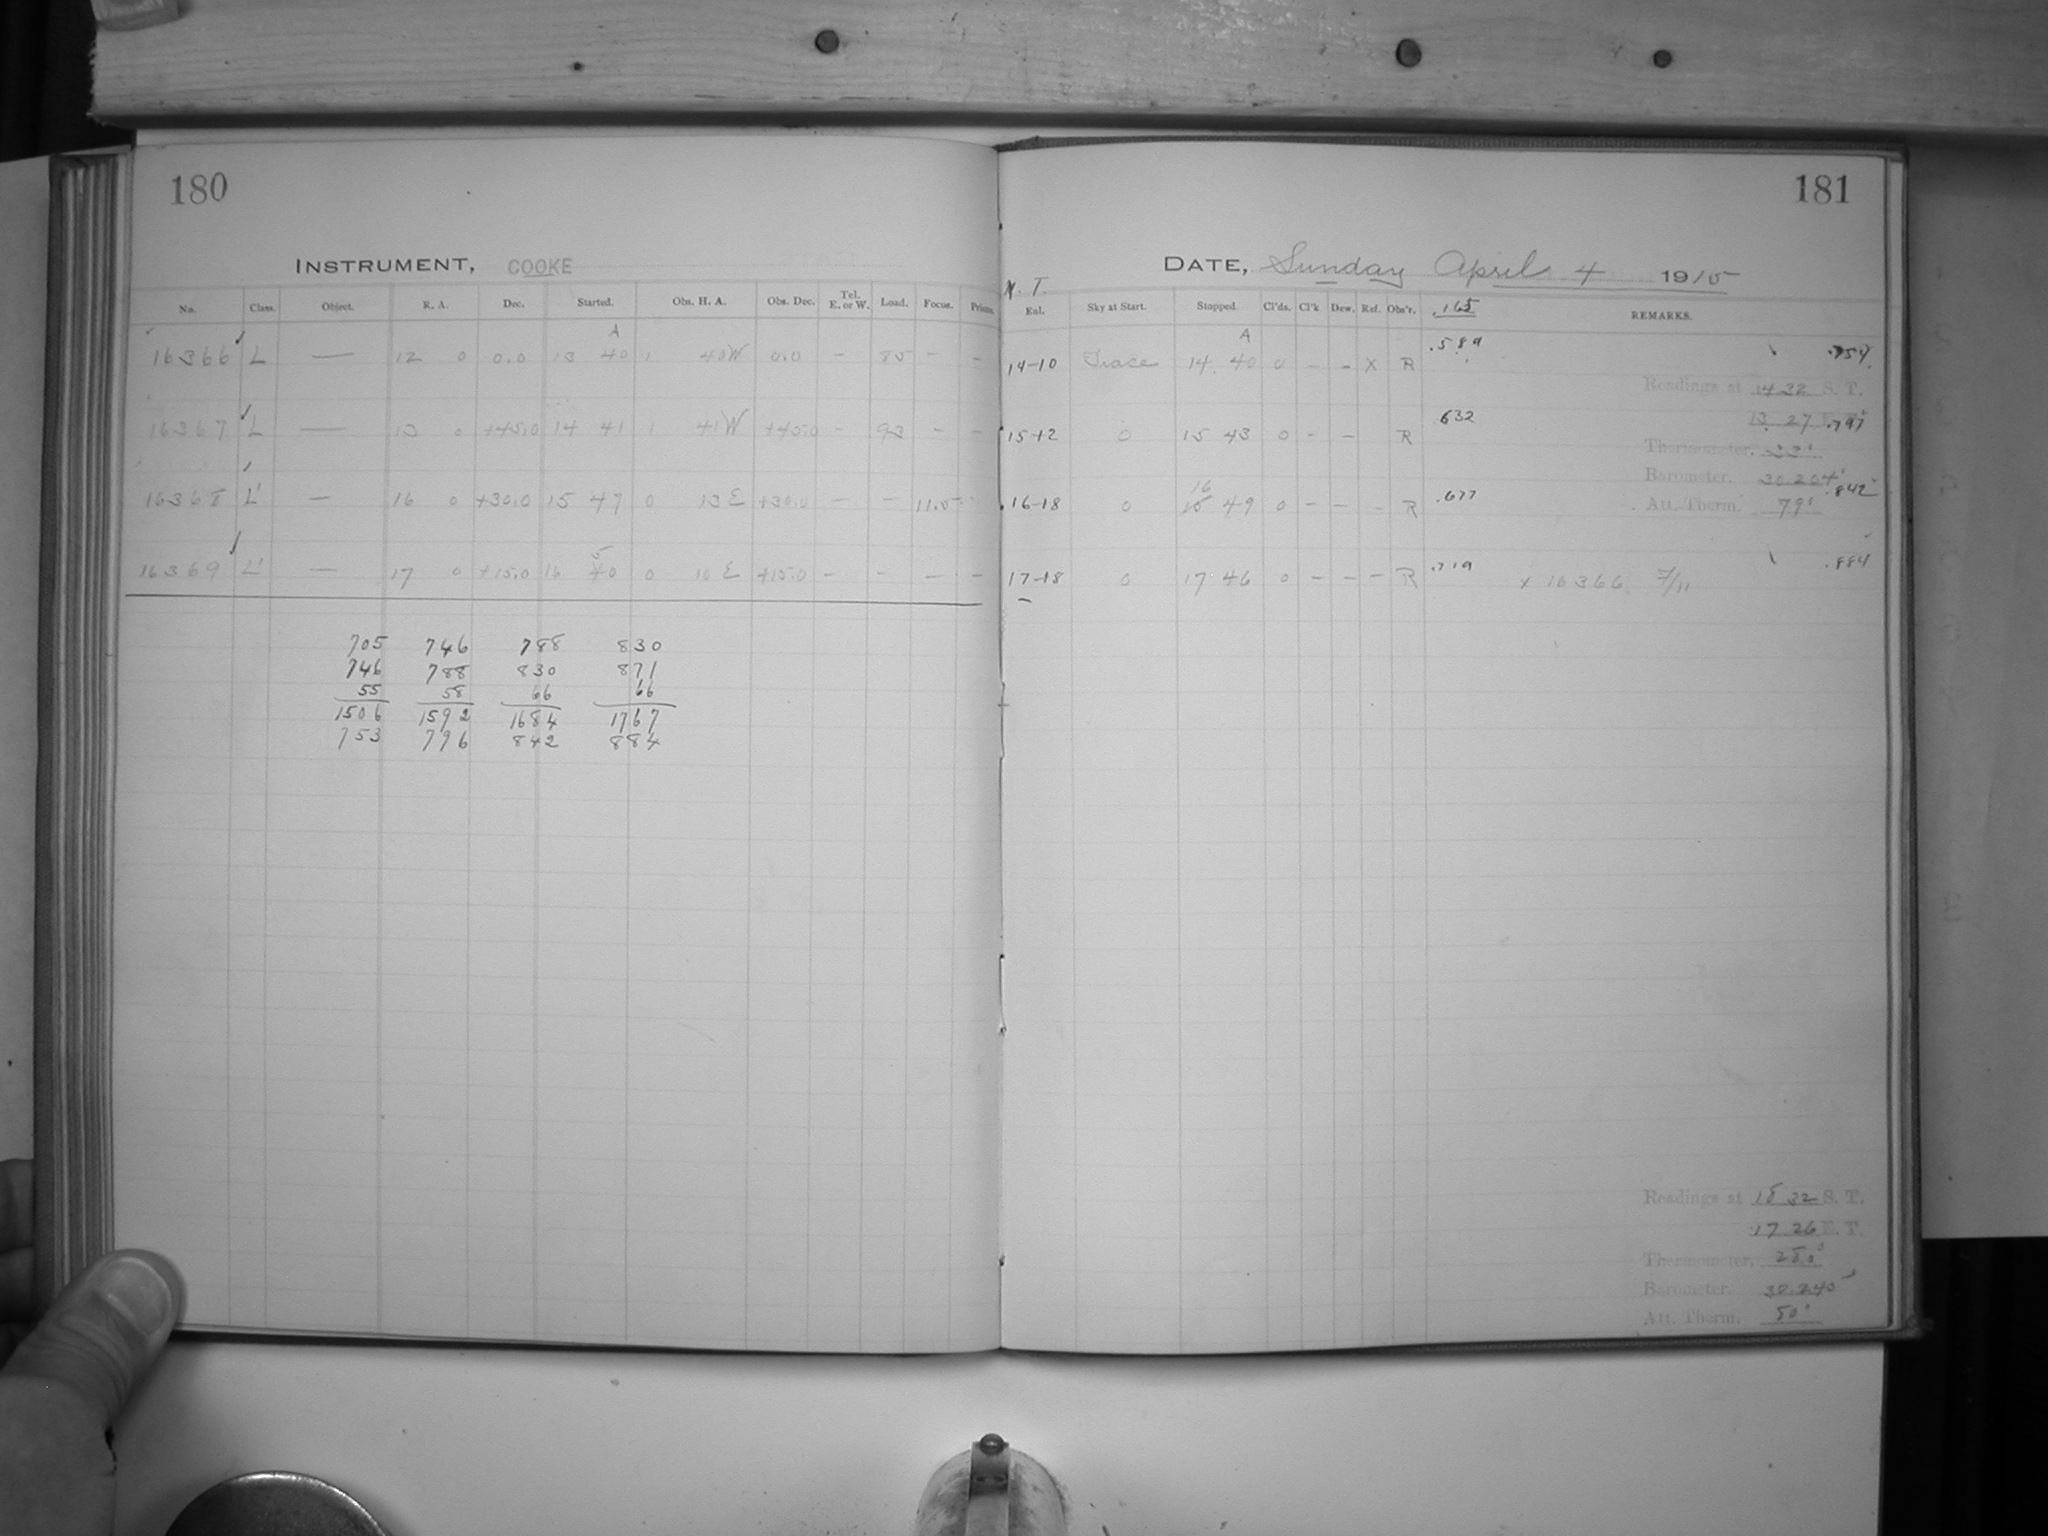 180
INSTRUMENT, COOKE
No. Class. Object. R. A. Dec. Started. Obs. H. A. Obs. Dec. Tel. E. or W. Load. Focus. Prisms.
A
16366 L — 12 0 0.0 13 40 1 40W 0.0 - 85 - -
16367 L — 13 0 +45.0 14 41 1 41W +45.0 - 93 - -
16368 L' — 16 0 +30.0 15 47 0 13E +30.0 - - 11.5 -
16369 L' — 17 0 +15.0 16 50 0 10E +15.0 - - - -
705 746 788 830
746 788 830 871
55 58 66 66
1506 1592 1684 1767
753 796 842 884
181
DATE, Sunday April 4 1915
N. T.
Enl. Sky at Start. Stopped. Cl'ds. Cl'k Dew. Ref. Obs'r. .165 REMARKS.
A
14-10 Trace 14 40 0 - - X R .589 .754
Readings at 14 32 S. T.
13 27 E. T.
15-12 0 15 43 0 - - R .632 .797
Thermometer. 33°
Barometer. 30.204
16-18 0 16 49 0 - - - R .677 .842
Att. Therm. 79°
17-18 0 17 46 0 - - - R .719 x 16366 7/11 .884
Readings at 18 32 S. T.
17 26 E. T.
Thermometer.
Barometer.
Att. Therm. 50°